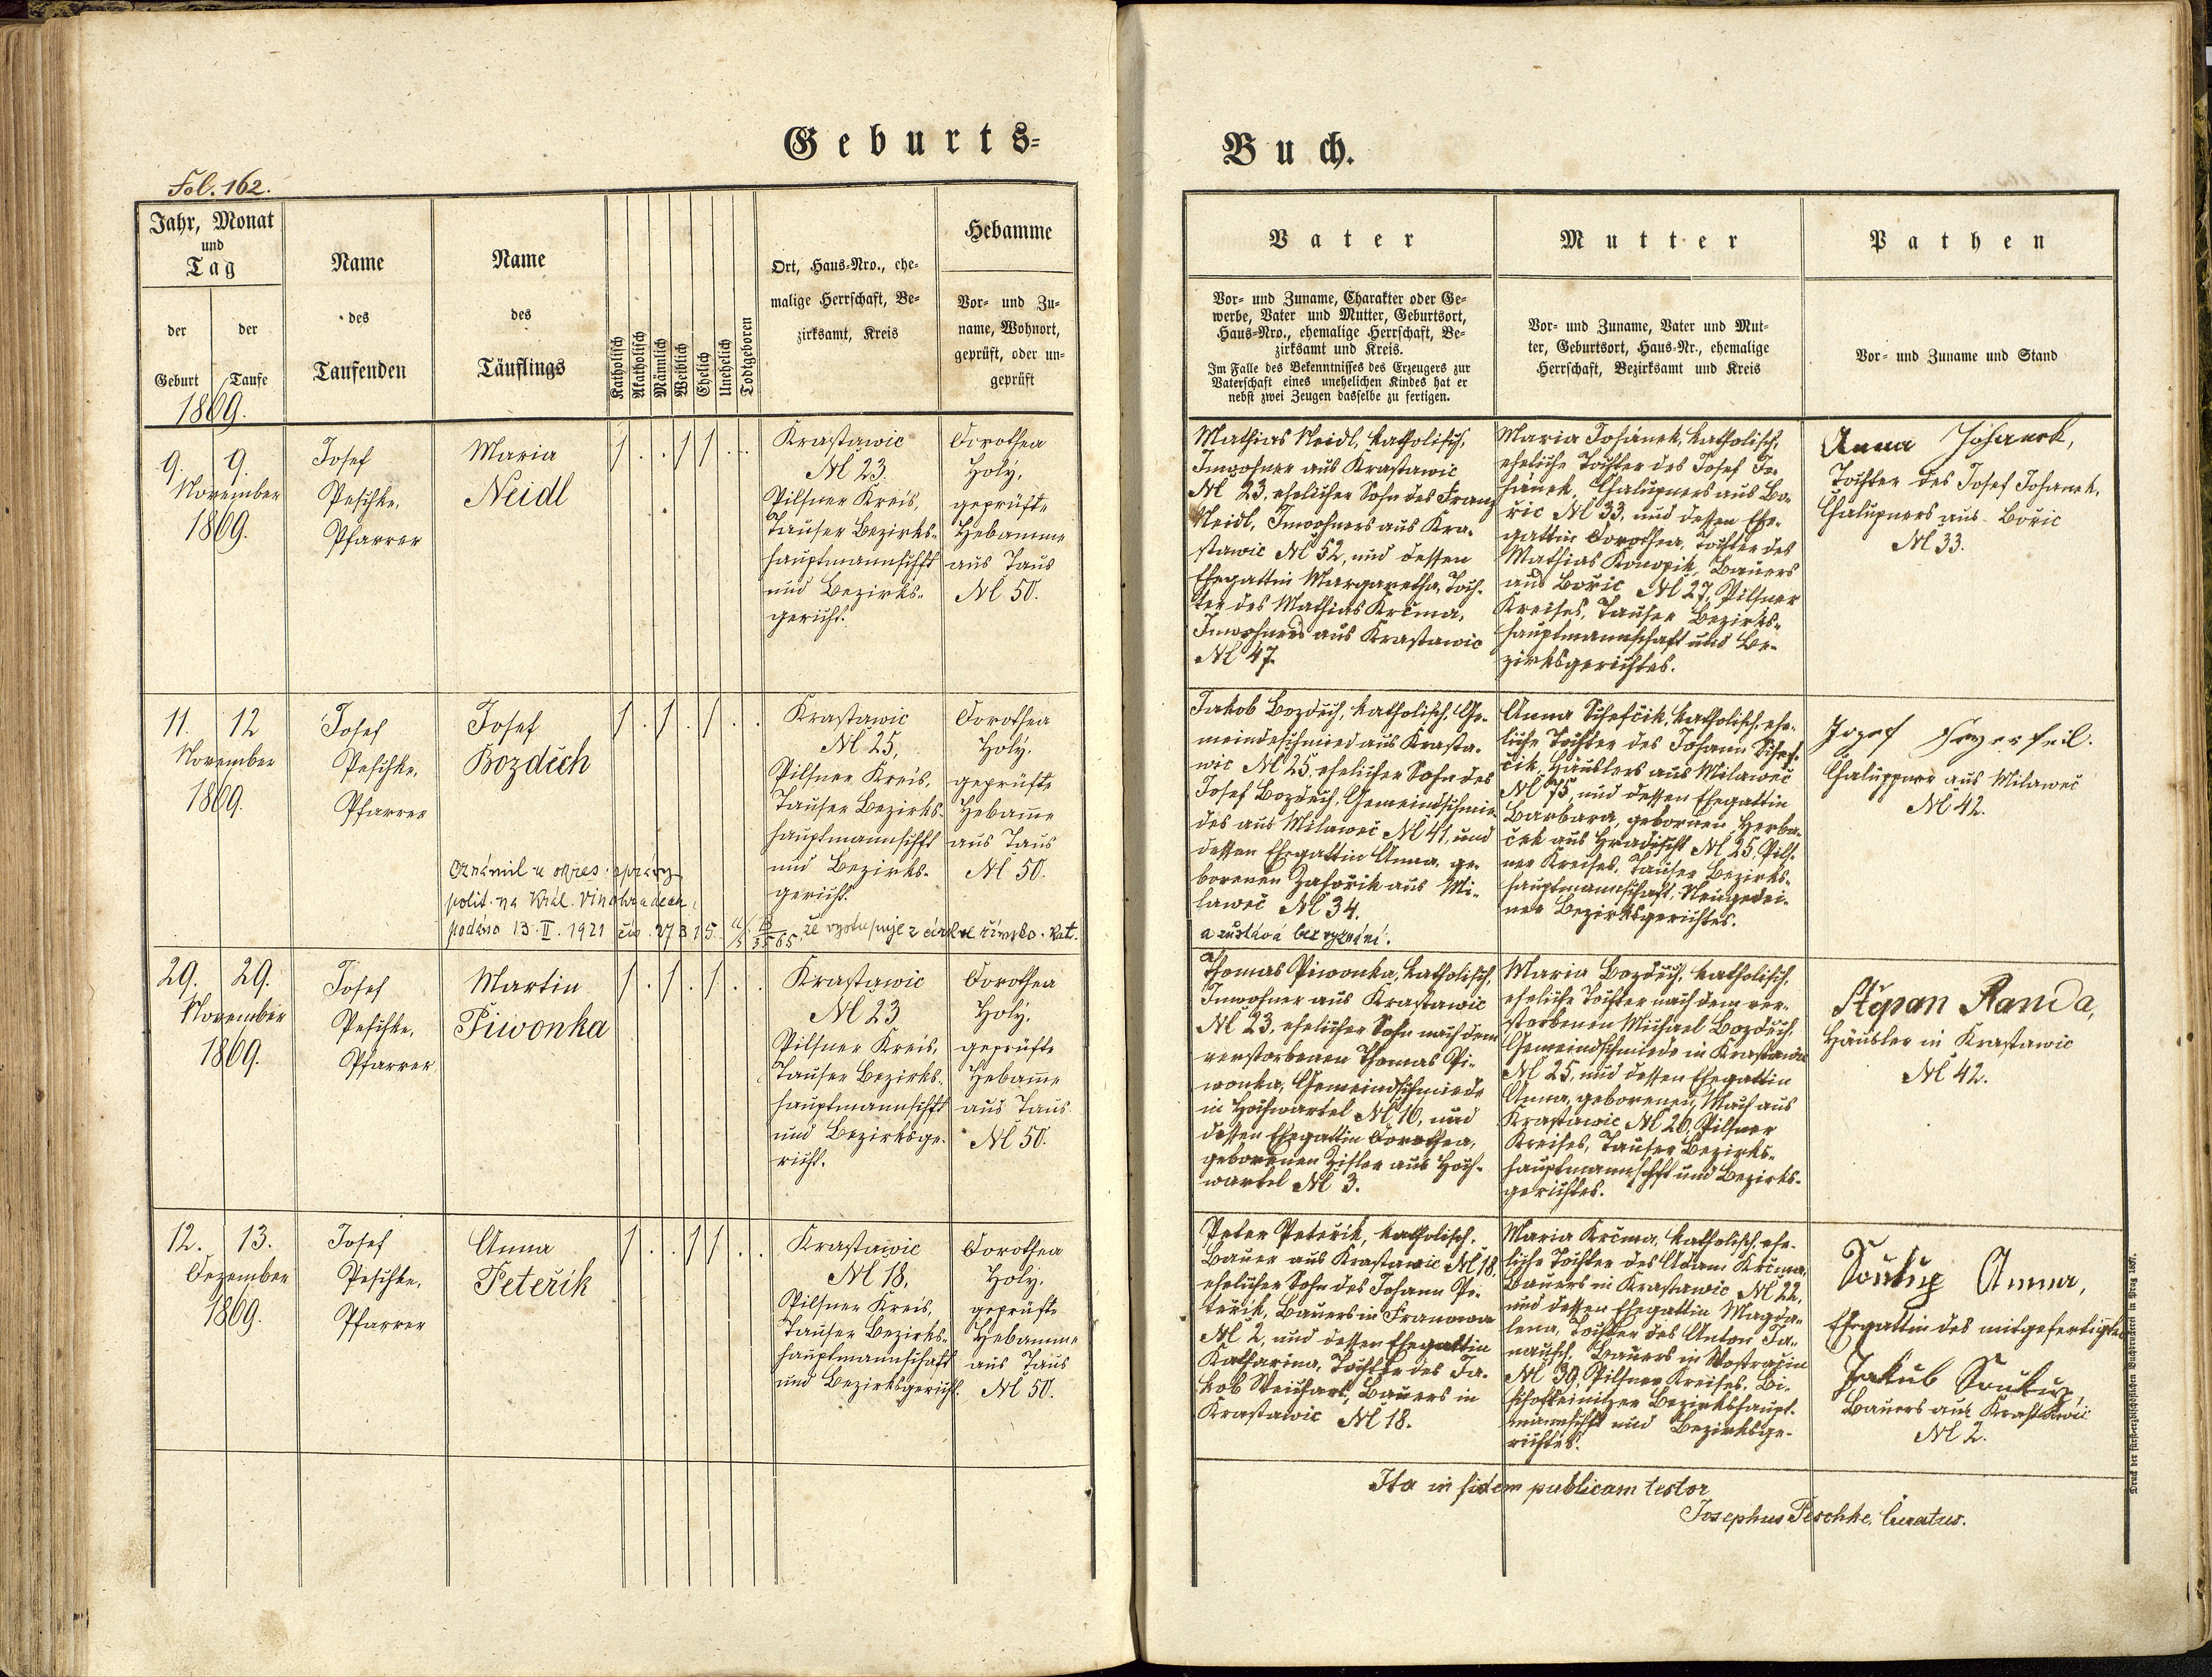 Geburts-
Buch.
Fol. 162.
Jahr, Monat
und
Tag
der
Geburt
der
Taufe
1869.
Name
des
Taufenden
Name
des
Täuflings
Katholisch
Akatholisch
Männlich
Weiblich
Ehelich
Unehelich
Todtgeboren
Ort, Haus-Nro., ehe-
malige Herrschaft, Be-
zirksamt, Kreis
Hebamme
Vor- und Zu-
name, Wohnort,
geprüft, oder un-
geprüft
Vater
Vor- und Zuname, Charakter oder Ge-
werbe, Vater und Mutter, Geburtsort,
Haus-Nro., ehemalige Herrschaft, Be-
zirksamt und Kreis.
Im Falle des Bekenntnisses des Erzeugers zur
Vaterschaft eines unehelichen Kindes hat er
nebst zwei Zeugen dasselbe zu fertigen.
Mutter
Vor- und Zuname, Vater und Mut-
ter, Geburtsort, Haus-Nr., ehemalige
Herrschaft, Bezirksamt und Kreis
Pathen
Vor- und Zuname und Stand
9. 9.
November
1869.
Josef
Peschke,
Pfarrer
Maria
Neidl
1 . . 1 1 . .
Krastawic
№ 23.
Pilsner Kreis,
Tauser Bezirks-
hauptmannschft
und Bezirks-
gericht.
Dorothea
Holý,
geprüfte
Hebamme
aus Taus
№ 50.
Mathias Neidl, katholisch,
Inwohner aus Krastawic
№ 23, ehelicher Sohn des Franz
Neidl, Inwohners aus Kra-
stawic № 52, und dessen
Ehegattin Margaretha, Toch-
ter des Mathias Krčma,
Inwohners aus Krastawic
№ 47.
Maria Johánek, katholisch,
eheliche Tochter des Josef Jo-
hánek, Chalupners aus Bo-
řic № 33, und dessen Ehe-
gattin Dorothea, Tochter des
Mathias Konopik, Bauers
aus Bořic № 27, Pilsner
Kreises, Tauser Bezirks-
hauptmannschaft und Be-
zirksgerichtes.
Anna Johanek,
Tochter des Josef Johanek,
Chalupners aus Bořic
№ 33.
11. 12
November
1869.
Josef
Peschke,
Pfarrer
Josef
Bozděch
1 . 1 . 1 . .
Krastawic
№ 25,
Pilsner Kreis,
Tauser Bezirks-
hauptmannschft
und Bezirks-
gericht.
Dorothea
Holý,
geprüfte
Hebam̄e
aus Taus
№ 50.
Oznámil u okres. správy
polit. na Král. Vinohradech,
podáno 13. II. 1921 čís. 27315 že vystupuje z církve římsko. kat.
Jakob Bozděch, katholisch, Ge-
meindeschmied aus Krasta-
wic № 25, ehelicher Sohn des
Josef Bozděch, Gemeindschmie-
des aus Milaweč № 41, und
dessen Ehegattin Anna, ge-
borenen Zahořik aus Mi-
laweč № 34.
a zůstává bez vyznání.
Anna Schefčik, katholisch, ehe-
liche Tochter des Johann Schef-
čik, Häuslers aus Milaweč
№ 75, und dessen Ehegattin
Barbara, gebornen Herbe-
ček aus Hradischt № 25, Pils-
ner Kreises, Tauser Bezirks-
hauptmannschaft, Neugedei-
ner Bezirksgerichtes.
Chaluppner aus Milaweč
№ 42.
29. 29.
November
1869.
Josef
Peschke,
Pfarrer
Martin
Piwonka
1 . 1 . 1 . .
Krastawic
№ 23
Pilsner Kreis,
Tauser Bezirks-
hauptmannschft
und Bezirksge-
richt.
Dorothea
Holý,
geprüfte
Hebam̄e
aus Taus
№ 50.
Thomas Piwonka, katholisch,
Inwohner aus Krastawic
№ 23, ehelicher Sohn nach dem
verstorbenen Thomas Pi-
wonka, Gemeindschmiede
in Hochwartel № 10, und
dessen Ehegattin Dorothea,
geborenen Zisler aus Hoch-
wartel № 3.
Maria Bozděch, katholisch,
eheliche Tochter nach dem ver-
storbenen Michael Bozděch,
Gemeindschmiede in Krastawic
№ 25, und dessen Ehegattin
Anna, geborenen Mach aus
Krastawic № 26, Pilsner
Kreises, Tauser Bezirks-
hauptmannschft und Bezirks-
gerichtes.
Stĕpan Randa,
Häusler in Krastawic
№ 42.
12. 13.
Dezember
1869.
Josef
Peschke,
Pfarrer
Anna
Peteřík
1 . . 1 1 . .
Krastawic
№ 18,
Pilsner Kreis,
Tauser Bezirks-
hauptmannschaft
und Bezirksgericht.
Dorothea
Holý,
geprüfte
Hebamme
aus Taus
№ 50.
Peter Peteřik, katholisch,
Bauer aus Krastawic № 18,
ehelicher Sohn des Johann Pe-
teřik, Bauers in Franowa
№ 2, und dessen Ehegattin
Katharina, Tochter des Ja-
kob Weichart, Bauers in
Krastawic № 18.
Maria Krčma, katholisch, ehe-
liche Tochter des Adam Krčma,
Bauers in Krastawic № 22,
und dessen Ehegattin Magda-
lena, Tochter des Anton Ja-
nausch, Bauers in Wostračin
№ 39, Pilsner Kreises, Bi-
schofteinitzer Bezirkshaupt-
mannschft und Bezirksge-
richtes.
Soukup Anna,
Ehegattin des mitgefertigten
Jakub Soukup,
Bauers aus Krastawic
№ 2.
Ita in fidem publicam testor
Josephus Peschke, Curatus.
Druck der fürsterzbischöflichen Buchdruckerei in Prag 1857.